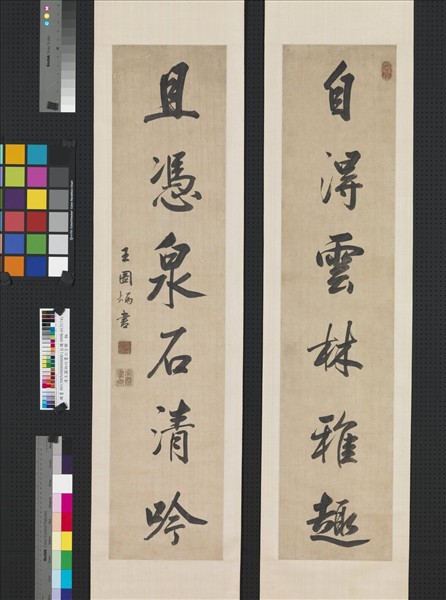 自得雲林雅趣
且憑泉石清吟
王圖炳書